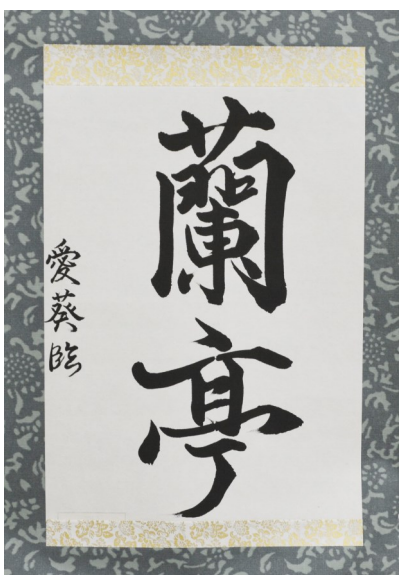 蘭亭
愛葵臨